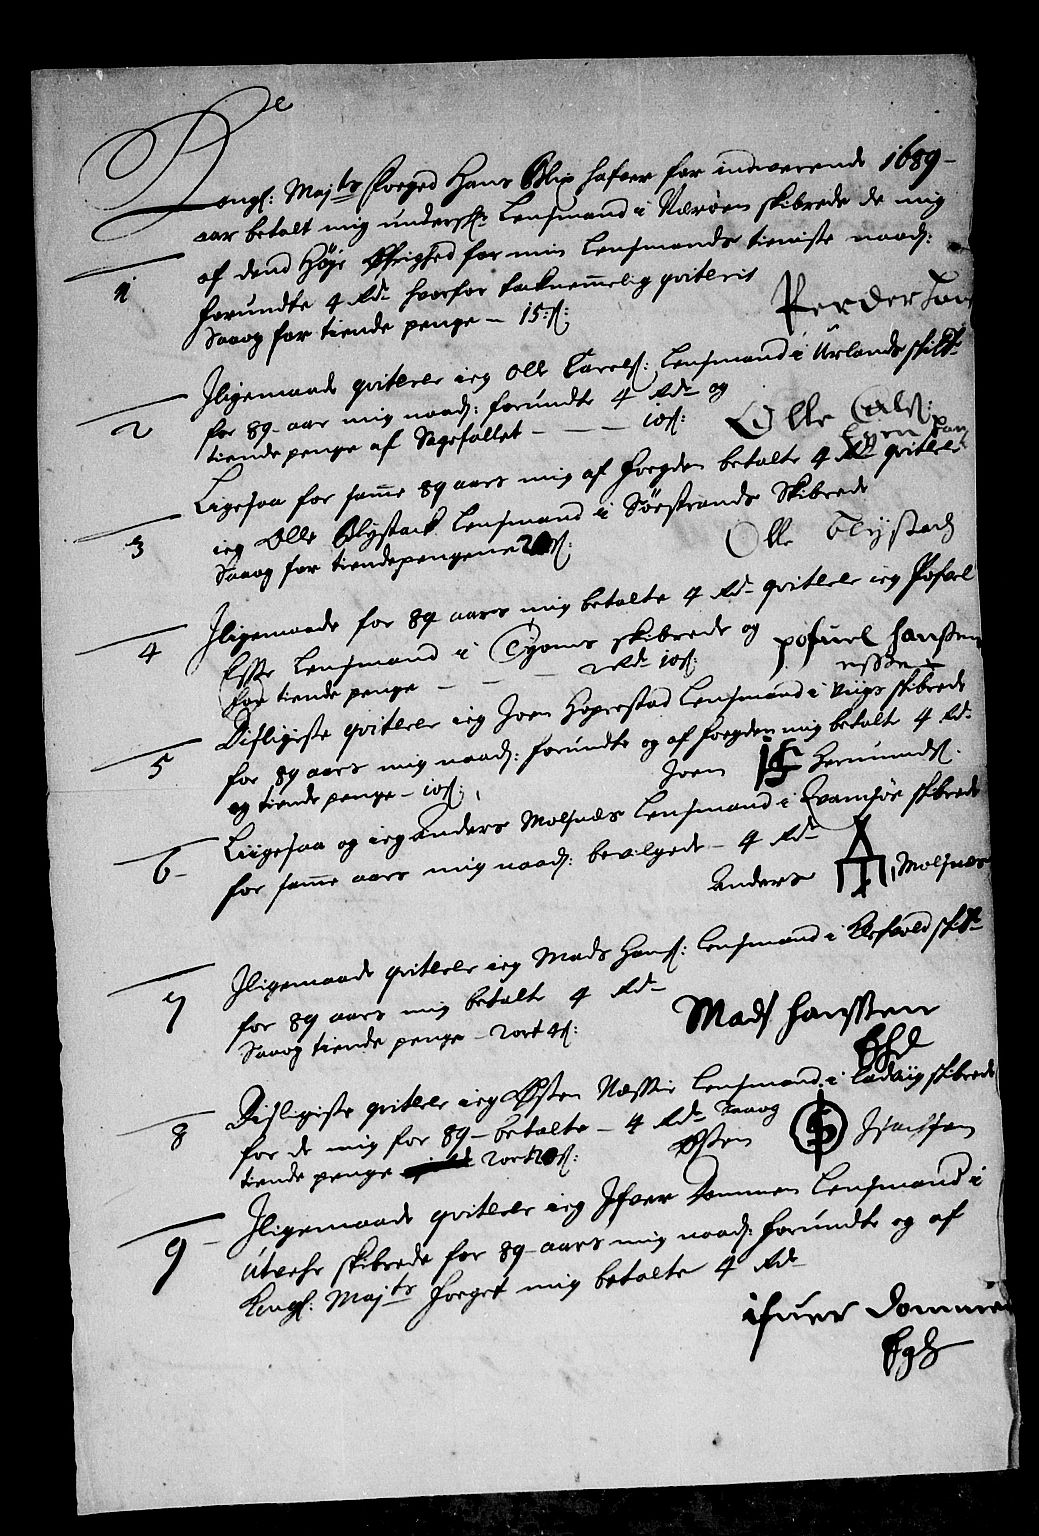 Kongl: Maj:ts Foeged Hans Blix hafver for indeverende 1689
aar betalt mig undersk: Lensmand i Nærøen skibrede de mig
1 af dend Høje Øfrighed for min Lensmands tieniste naad:
forundte 4 Rd. hvorfor tacknemmelig qviteris
Saaog for tiende penge – 15 ß:
Peder
Jligemaade qviterer ieg Olle Carels: Lensmand i Urlands skibr.
2 for 89 aar mig naad: forundte 4 Rd. og
tiende penge af Sagefallet – – – 10 ß:
Olle
Ligesaa for samme 89 aars mig af fogden betalte 4 Rd. qviterer
3 ieg Olle Flystack Lensmand i Sørstrands Skibrede
Saaog for tiendepengene
Olle Flystach
Jligemaade for 89 aars mig betalte 4 Rd. qviterer ieg Pofvel
4 Esse Lensmand i Tyoms skibrede og
for tiende penge – – – 2 Rd. 10 ß:
pofuel hanssen
esse
Disligeste qviterer ieg Joen Hoperstad Lensmand i Viigs skibrede
5 for 89 aars mig naad: forundte og af foegden mig betalt 4 Rd.
og tiende penge – 10 ß:
Joen Hermunds:
Liigesaa og ieg Anders Molsnæs Lensmand i Qvamsøe skibrede
6 for samme aars mig naad: bevilgede – 4 Rd.
Anders Molsnæs
Jligemaade qviterer ieg Mads Hans: Lensmand i skibr.
7 for 89 aars mig betalte 4 Rd.
Saaog tiende penge – 2 ort 4 ß:
Mads hanssen
Disligeste qviterer ieg Østen Næssie Lensmand i Ladviig skibrede
8 for de mig for 89 – betalte – 4 Rd. Saaog
tiende penge 2 ort
Østen
Jligemaade qviterer ieg Jfver Dommen Lensmand i
9 Utvehr skibrede for 89 aars mig naad: forundte og af
Kongl: Maj:ts foeget mig betalte 4 Rd.
ifuer Dommen